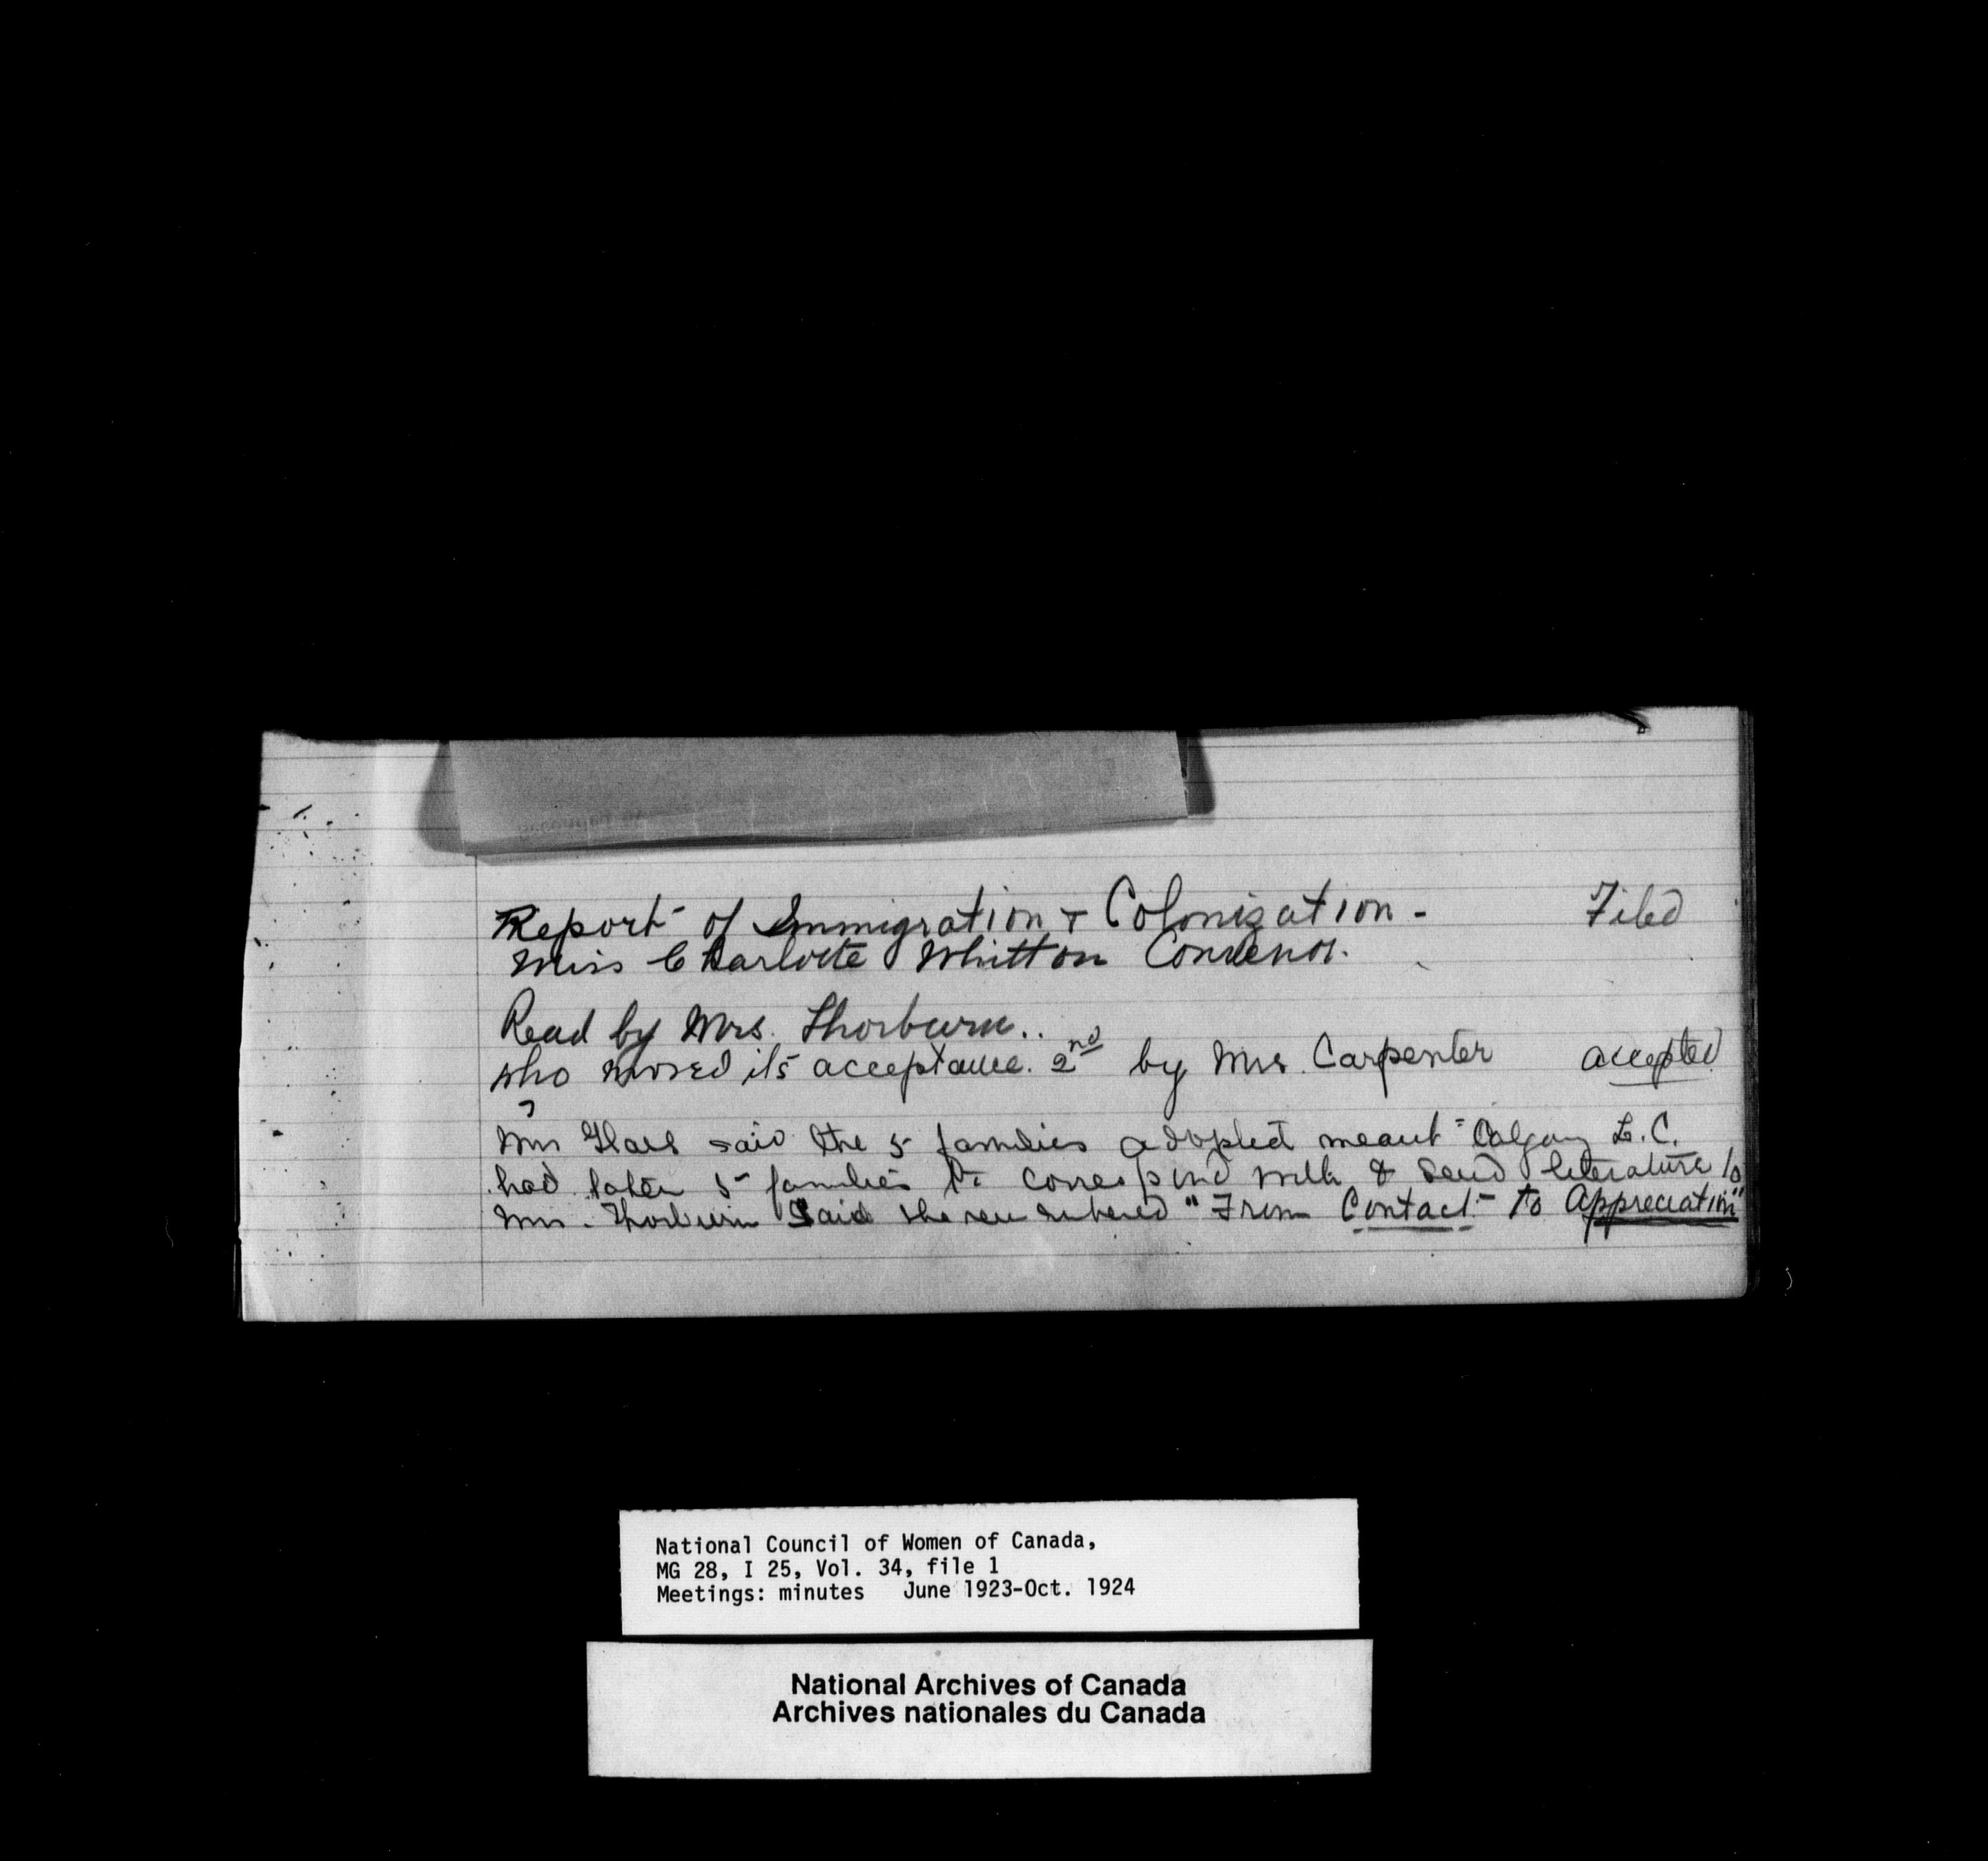 Report of Immigration + Colonization - Filed
Miss Charlotte Whitton Convenor.
Read by Mrs. Thorburn..
who moved its acceptance. 2nd by Mrs. Carpenter accepted
Mrs said the 5 families adopted meant Calgary L.C.
had taken 5 families to correspond with & send literature to
Mrs. Thorburn said she remembered "From Contact to Appreciation"
National Council of Women of Canada,
MG 28, I 25, Vol. 34, file 1
Meetings: minutes June 1923-Oct. 1924
National Archives of Canada
Archives nationales du Canada